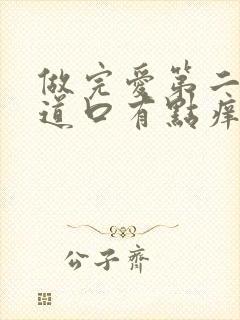 做完愛第二
道口有點痒
公子齊